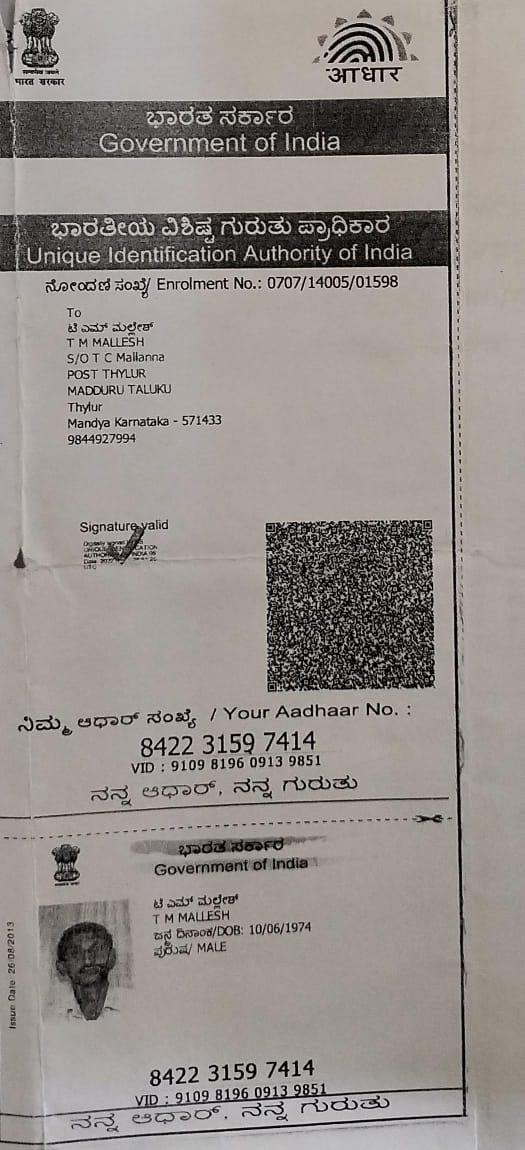 भारत सरकार
आधार
ಭಾರತ ಸರ್ಕಾರ
Government of India
ಭಾರತೀಯ ವಿಶಿಷ್ಟ ಗುರುತು ಪ್ರಾಧಿಕಾರ
Unique Identification Authority of India
ನೋಂದಣಿ ಸಂಖ್ಯೆ/ Enrolment No.: 0707/14005/01598
To
ಟಿ ಎಮ್ ಮಲ್ಲೇಶ್
T M MALLESH
S/O T C Mallanna
POST THYLUR
MADDURU TALUKU
Thylur
Mandya Karnataka - 571433
9844927994
Signature valid
ನಿಮ್ಮ ಆಧಾರ್ ಸಂಖ್ಯೆ / Your Aadhaar No. :
8422 3159 7414
VID : 9109 8196 0913 9851
ನನ್ನ ಆಧಾರ್, ನನ್ನ ಗುರುತು
ಭಾರತ ಸರ್ಕಾರ
Government of India
ಟಿ ಎಮ್ ಮಲ್ಲೇಶ್
T M MALLESH
ಜನ್ಮ ದಿನಾಂಕ/DOB: 10/06/1974
ಪುರುಷ/ MALE
Issue Date: 26/08/2013
8422 3159 7414
VID : 9109 8196 0913 9851
ನನ್ನ ಆಧಾರ್, ನನ್ನ ಗುರುತು